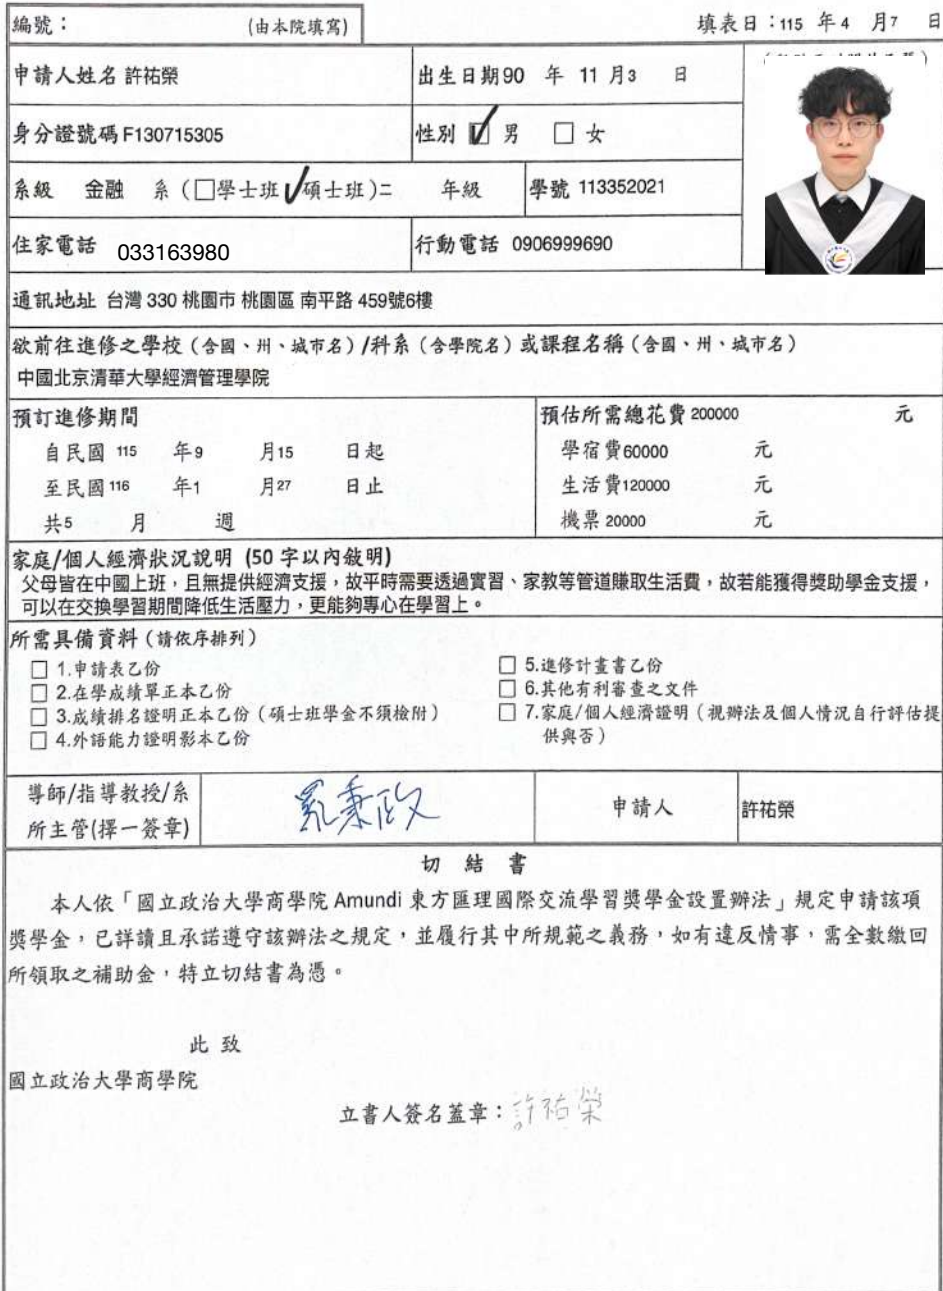 編號： (由本院填寫) 填表日：115 年 4 月 7 日
申請人姓名 許祐榮 出生日期 90 年 11 月 3 日
身分證號碼 F130715305 性別 ☑ 男 □ 女
系級 金融 系 (□學士班 ☑碩士班) 二 年級 學號 113352021
住家電話 033163980 行動電話 0906999690
通訊地址 台灣 330 桃園市 桃園區 南平路 459號6樓
欲前往進修之學校（含國、州、城市名）/科系（含學院名）或課程名稱（含國、州、城市名）
中國北京清華大學經濟管理學院
預訂進修期間 預估所需總花費 200000 元
自民國 115 年 9 月 15 日起 學宿費 60000 元
至民國 116 年 1 月 27 日止 生活費 120000 元
共 5 月 週 機票 20000 元
家庭/個人經濟狀況說明 (50 字以內敘明)
父母皆在中國上班，且無提供經濟支援，故平時需要透過實習、家教等管道賺取生活費，故若能獲得獎助學金支援，
可以在交換學習期間降低生活壓力，更能夠專心在學習上。
所需具備資料（請依序排列）
□ 1.申請表乙份
□ 2.在學成績單正本乙份
□ 3.成績排名證明正本乙份（碩士班學金不須檢附）
□ 4.外語能力證明影本乙份
□ 5.進修計畫書乙份
□ 6.其他有利審查之文件
□ 7.家庭/個人經濟證明（視辦法及個人情況自行評估提
供與否）
導師/指導教授/系
所主管(擇一簽章)
申請人 許祐榮
切 結 書
本人依「國立政治大學商學院 Amundi 東方匯理國際交流學習獎學金設置辦法」規定申請該項
獎學金，已詳讀且承諾遵守該辦法之規定，並履行其中所規範之義務，如有違反情事，需全數繳回
所領取之補助金，特立切結書為憑。
此 致
國立政治大學商學院
立書人簽名蓋章：許祐榮